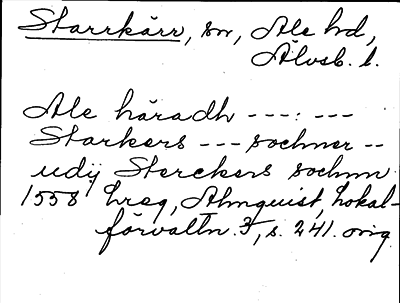 Starrkärr, sn, Ale hd,
Älvsb. l.
Ale häradh ---:---
Starkers --- sochner --
udij Sterckers sochnn
1558 Lreg, Almquist, Lokal-
förvaltn. 3, s. 241. orig